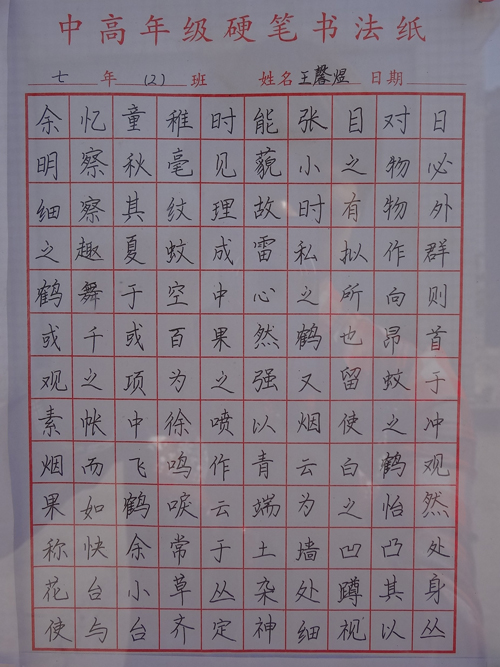 中高年级硬笔书法纸
七年(2)班 姓名王馨煜 日期
余忆童稚时能张目对日
明察秋毫见藐小之物必
细察其纹理故时有物外
之趣夏蚊成雷私拟作群
鹤舞于空中心之所向则
或千或百果然鹤也昂首
观之项为之强又留蚊于
素帐中徐喷以烟使之冲
烟而飞鸣作青云白鹤观
果如鹤唳云端为之怡然
称快余常于土墙凹凸处
花台小草丛杂处蹲其身
使与台齐定神细视以丛